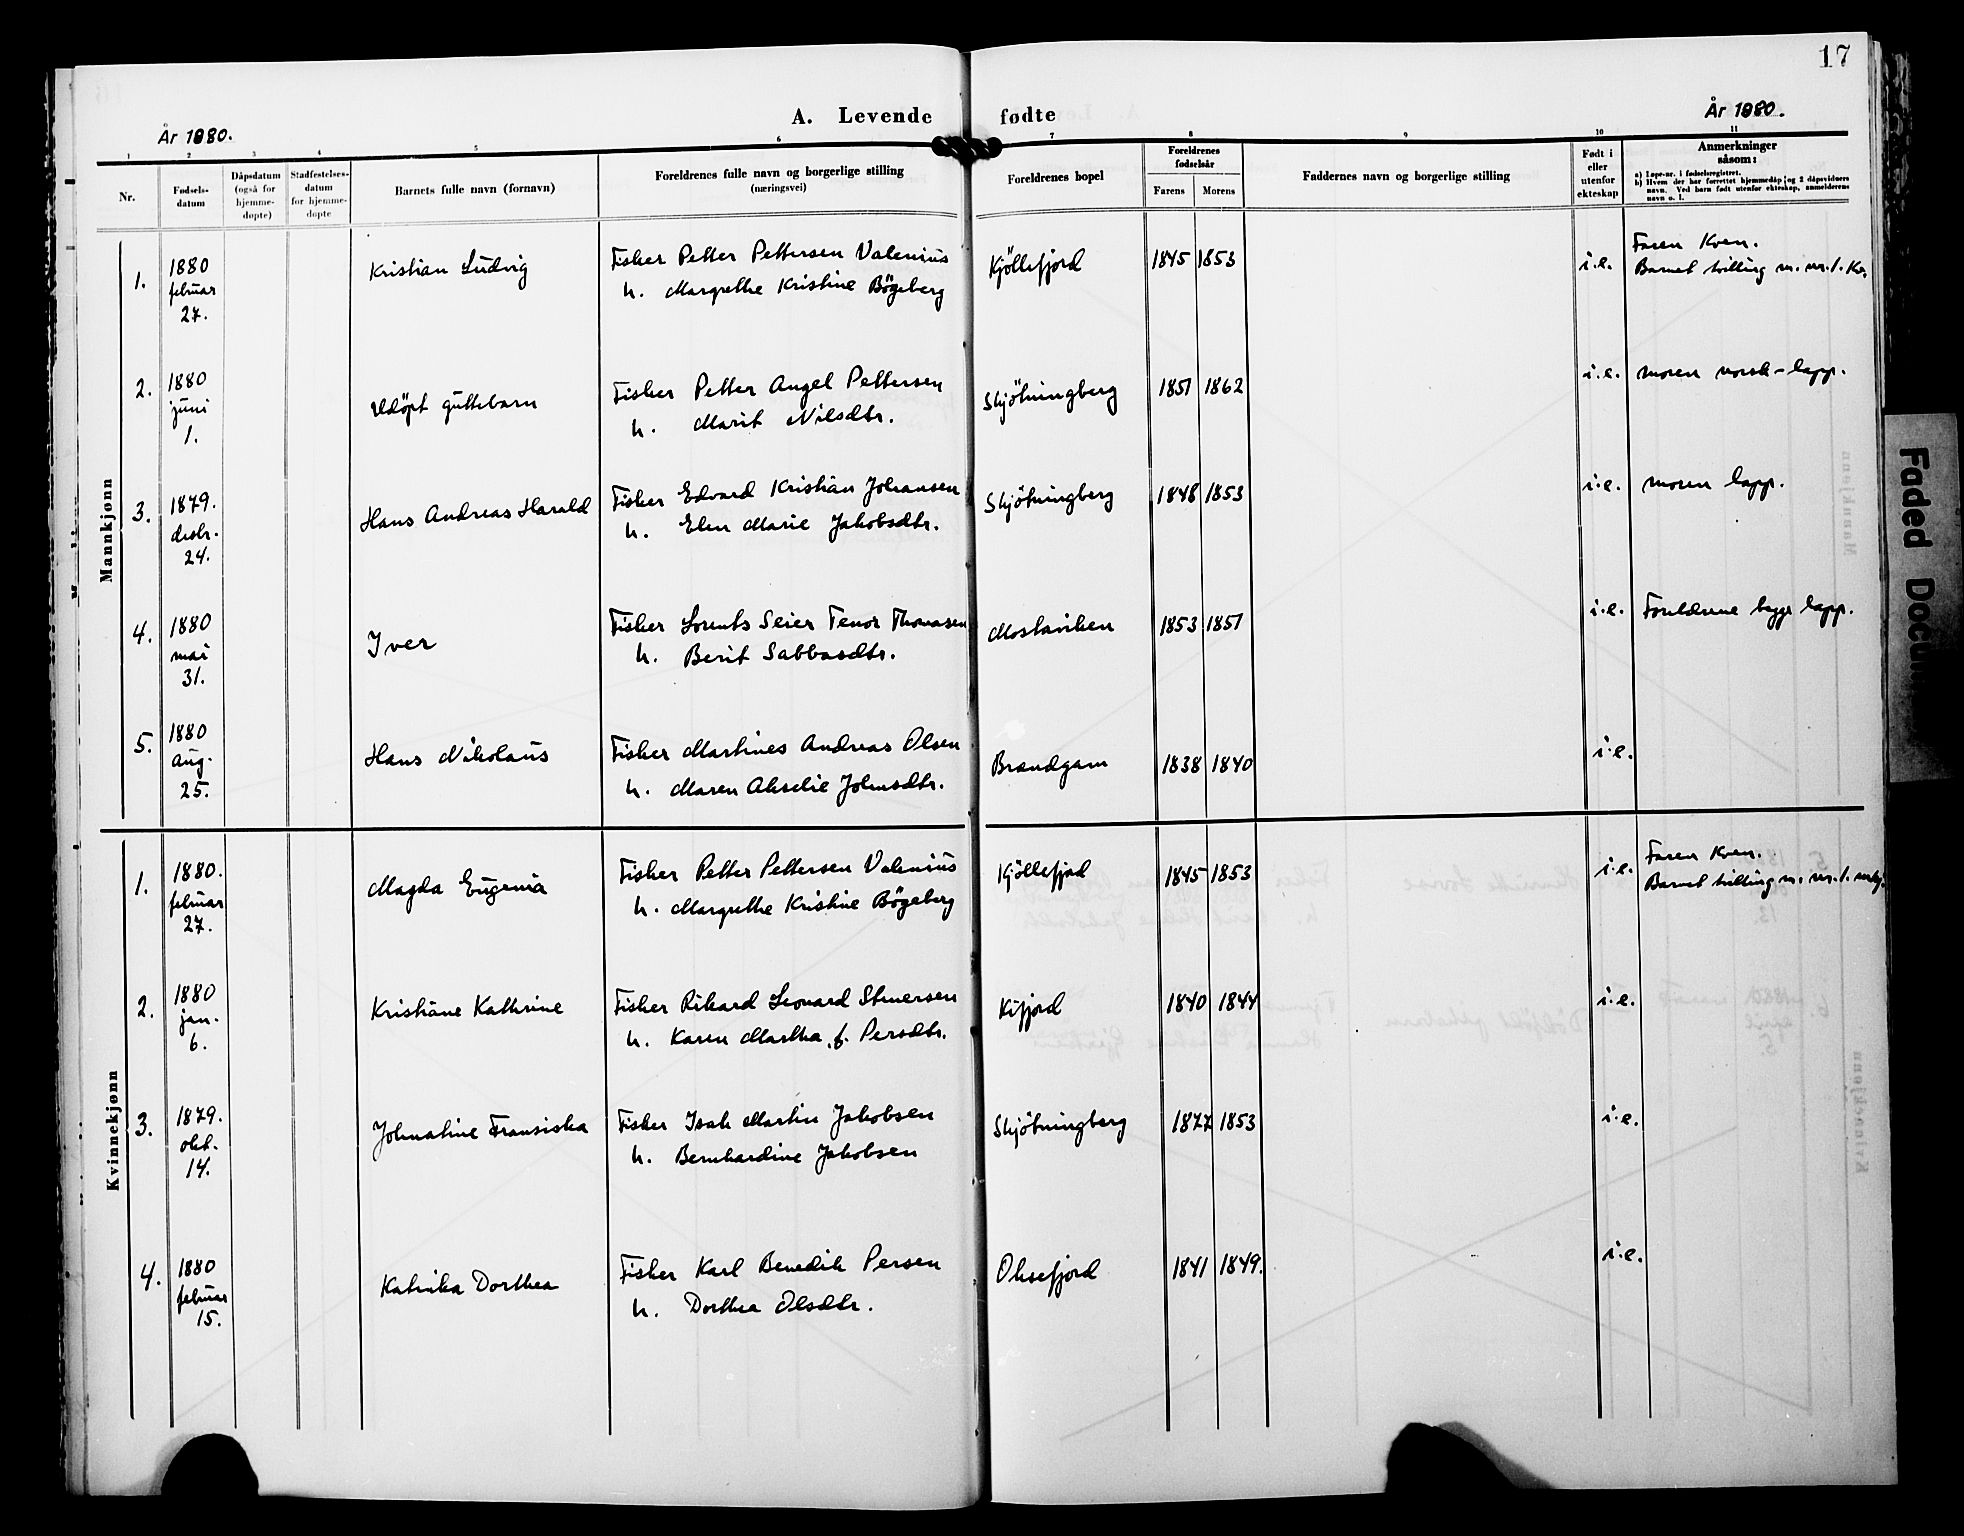 17
A. Levende fødte
År 1880.
År 1880.
1 2 3 4 5 6 7 8 9 10 11
Nr.
Fødsels-
datum
Dåpsdatum
(også for
hjemme-
døpte)
Stadfestelses-
datum
for hjemme-
døpte
Barnets fulle navn (fornavn)
Foreldrenes fulle navn og borgerlige stilling
(næringsvei)
Foreldrenes bopel
Foreldrenes
fødselsår
Farens Morens
Faddernes navn og borgerlige stilling
Født i
eller
utenfor
ekteskap
Anmerkninger
såsom:
a) Løpe-nr. i fødselsregistret.
b) Hvem der har forrettet hjemmedåp og 2 dåpsvidners
navn. Ved barn født utenfor ekteskap, anmelderens
navn o. l.
Mannkjønn
1.
1880
februar
27.
Kristian Ludvig
Fisker Petter Pettersen Valenius
h. Margrethe Kristine Bögeberg
Kjöllefjord
1845 1853
i.e.
Faren Kven.
Barnet tvilling m. nr. 1. Kv.
2.
1880
juni
1.
Udöpt guttebarn
Fisker Petter Angel Pettersen
h. Marit Nilsdtr.
Skjötningberg
1851 1862
i.e.
moren norsk-lapp.
3.
1879.
desbr.
24.
Hans Andreas Harald
Fisker Edvard Kristian Johansen
h. Elen Marie Jakobsdtr.
Skjötningberg
1848 1853
i.e.
moren lapp.
4.
1880
mai
31.
Iver
Fisker Lorents Seier Tenor Thomasen
h. Berit Sabbasdtr.
Mostaviken
1853 1851
i.e.
Foreldrene begge lapp.
5.
1880
aug.
25.
Hans Nikolaus
Fisker Martines Andreas Olsen
h. Maren Akselie Johnsdtr.
Brandgam
1838 1840
i.e.
Kvinnekjønn
1.
1880.
februar
27.
Magda Eugenia
Fisker Petter Pettersen Valenius
h. Margrethe Kristine Bögeberg
Kjöllefjord
1845 1853
i.e.
Faren Kven.
Barnet tvilling m. nr. 1.
2.
1880
jan.
6.
Kristiane Kathrine
Fisker Rikard Leonard
h. Karen Martha f. Persdtr.
Kifjord
1840 1844
i.e.
3.
1879.
okt.
14.
Johnatine Fransiska
Fisker Isak Martin Jakobsen
h. Bernhardine Jakobsen
Skjötningberg
1877 1853
i.e.
4.
1880
februar
15.
Katrika Dorthea
Fisker Karl Benedik Persen
h. Dorthea Olsdtr.
Oksefjord
1841 1849.
i.e.
Faded